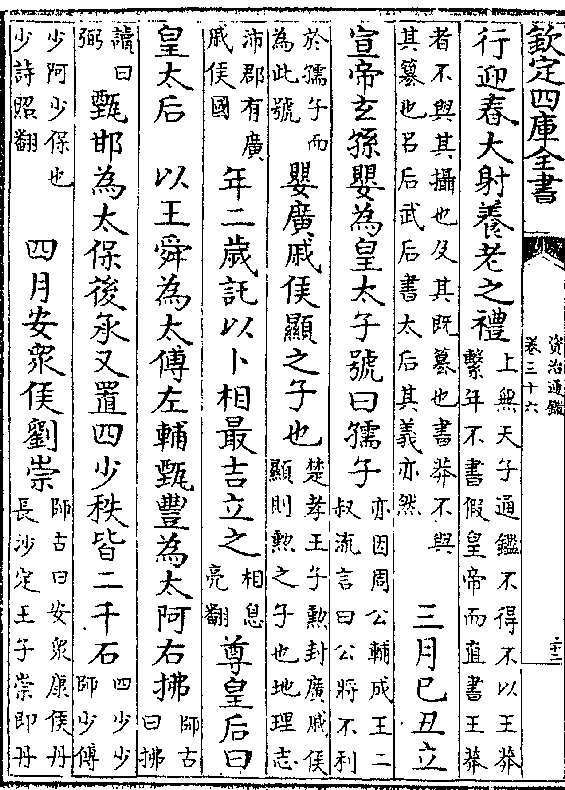 欽定四庫全書
資治通鑑
卷三十六
行迎春大射養老之禮
上無天子通鑑不得不以王莽
繫年不書假皇帝而直書王莽
者不與其攝也及其既篡也書莽不與
其篡也呂后武后書太后其義亦然
三月己丑立
宣帝玄孫嬰為皇太子號曰孺子
亦因周公輔成王二
叔流言曰公將不利
於孺子而
為此號
嬰廣戚侯顯之子也
楚孝王子勲封廣戚侯
顯則勲之子也地理志
沛郡有廣
戚侯國
年二歲託以卜相最吉立之
相息
亮翻
尊皇后曰
皇太后 以王舜為太傅左輔甄豐為太阿右拂
師古
曰拂
讀曰
弼
甄邯為太保後丞又置四少秩皆二千石
四少少
師少傅
少阿少保也
少詩照翻
四月安衆侯劉崇
師古曰安衆康侯丹
長沙定王子崇即丹